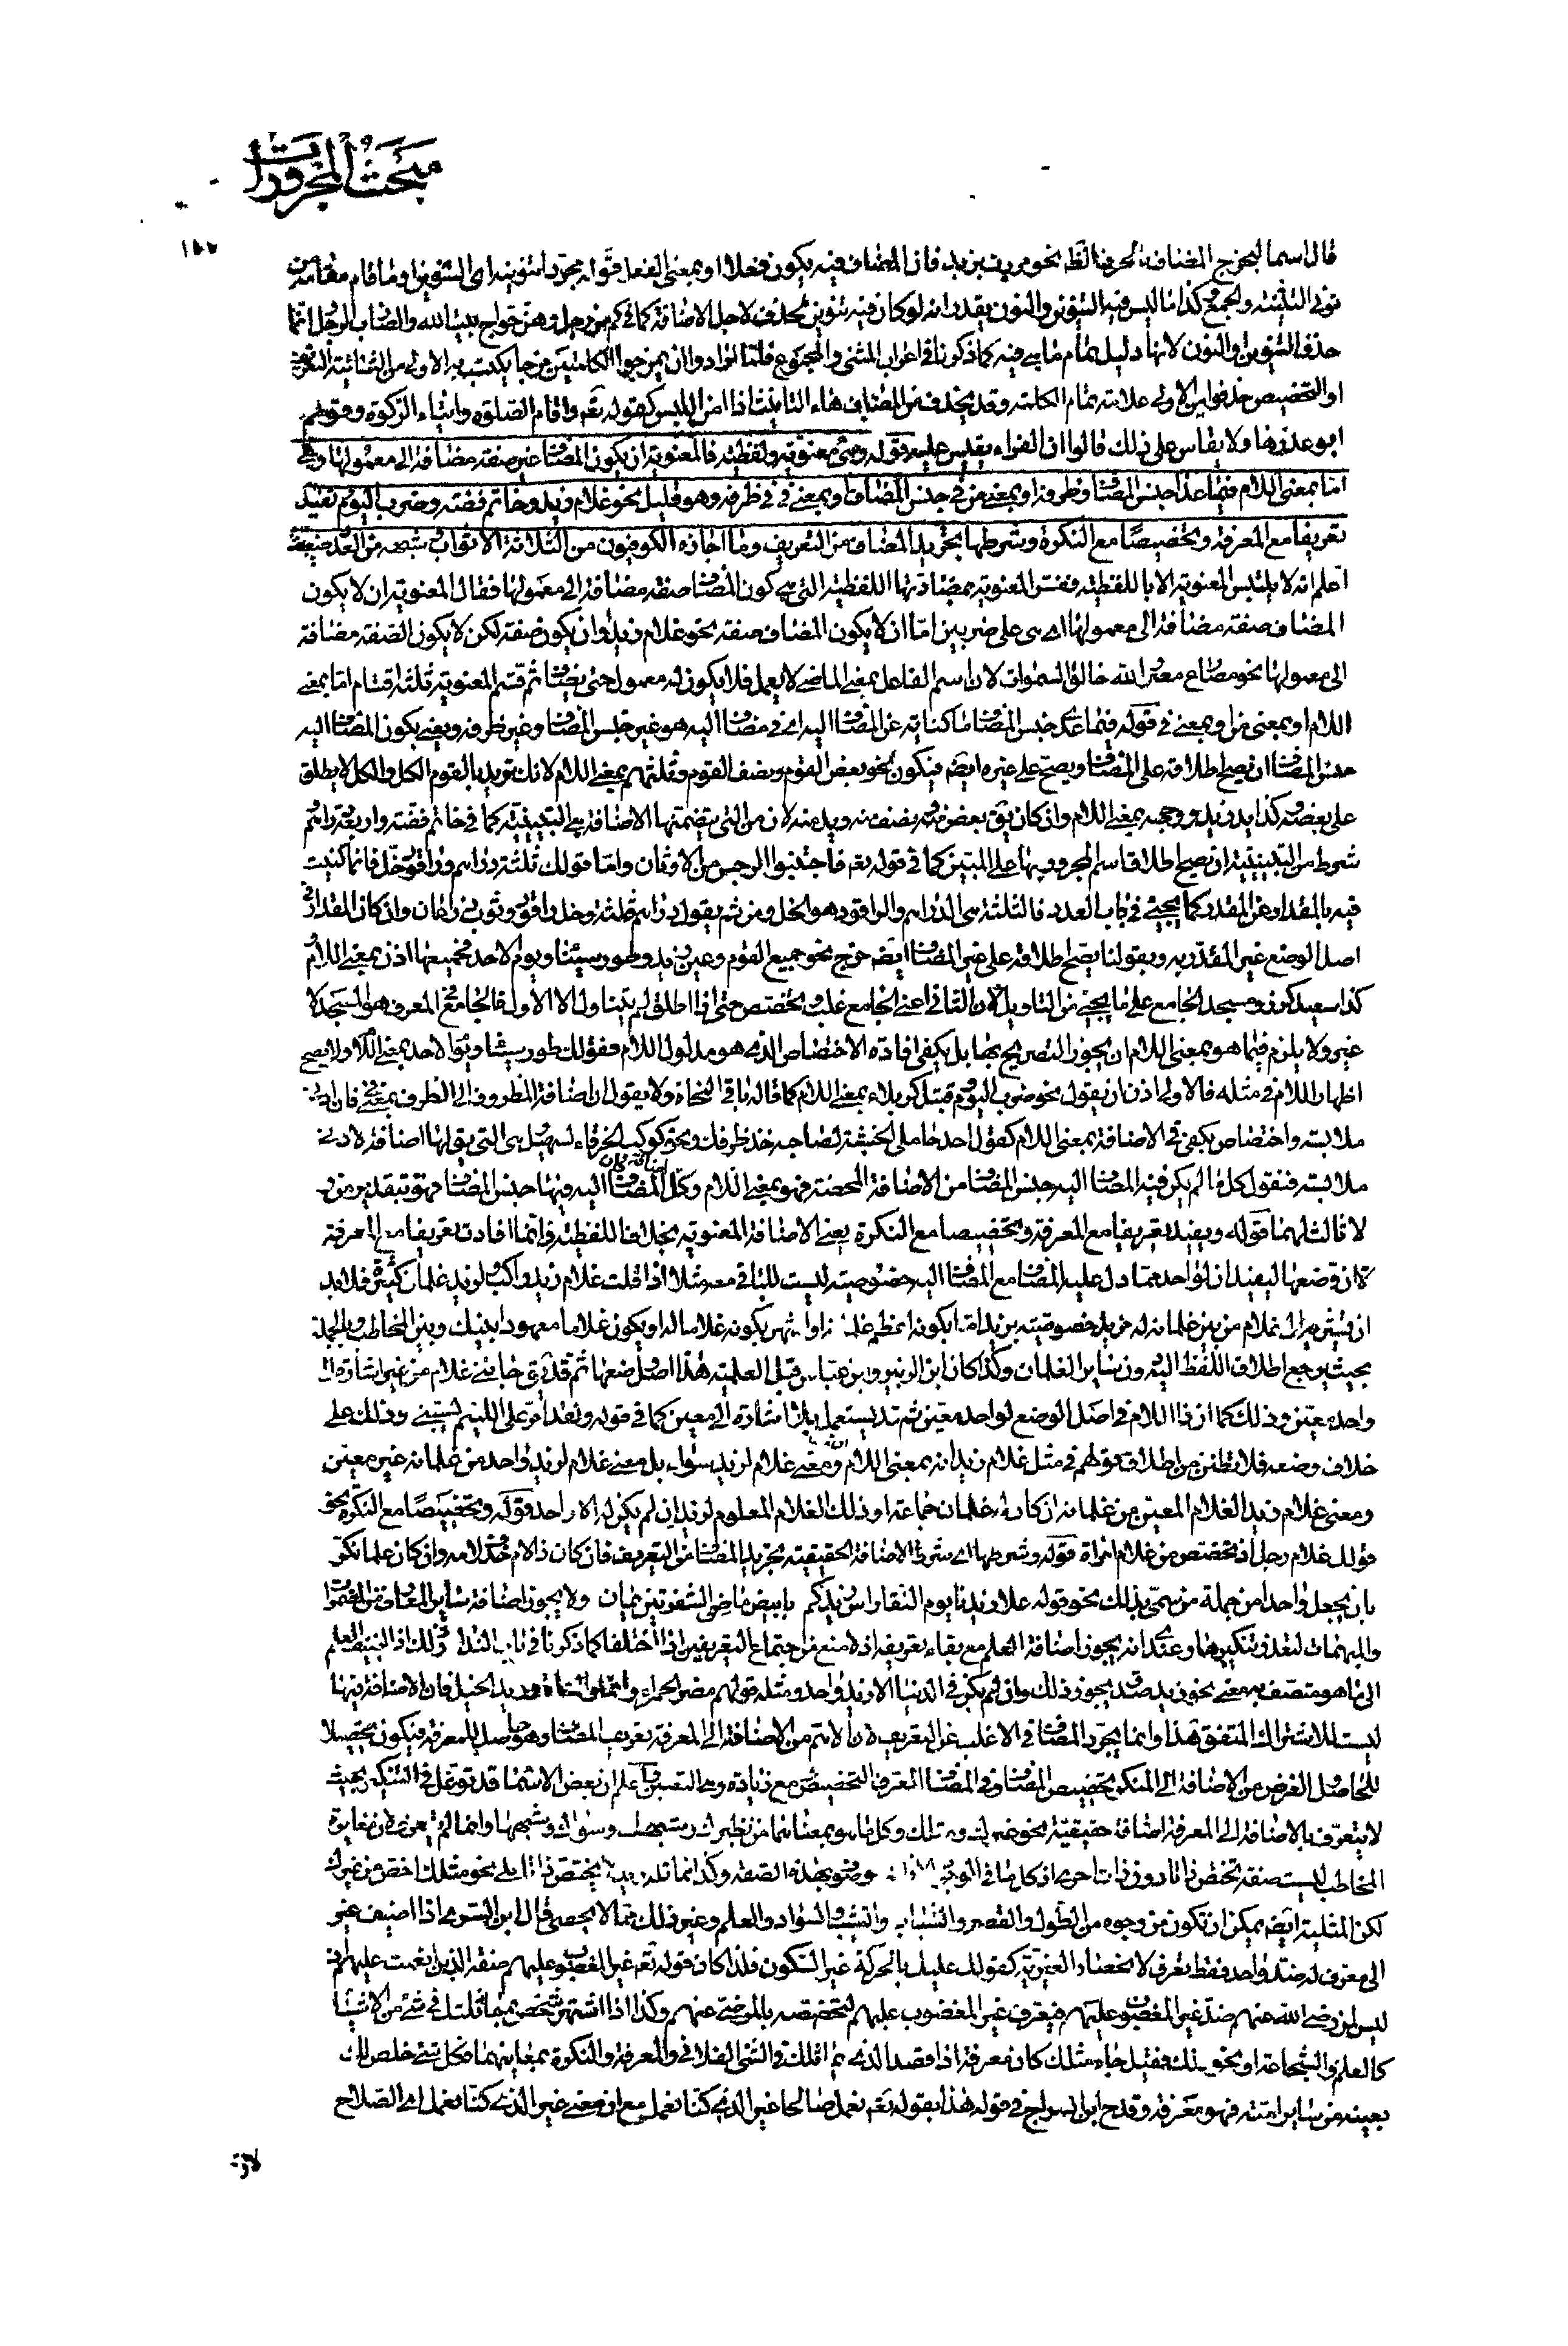 مبحث المجرورات
قال اسما ليخرج المضاف بالحرف الظ نحو مررت بزيد فان المضاف فيه يكون فعلا او بمعنى الفعل قوله مجردا تنوينه اى التنوين او ما قام مقامه من
نونى التثنية والجمع وكذا ما ليس فيه التنوين والنون يقدر انه لو كان فيه تنوين لحذف لاجل الاضافة كما فى كم رجل وهن حواج بيت الله والضارب الرجل انما
حذف التنوين او النون لانها دليل تمام ما هى فيه كما ذكرنا فى اعراب المثنى والمجموع فلما ارادوا ان يمزجوا الكلمتين مزجا يكتسب به الاولى من الثانية التعريف
او التخصيص حذفوا من الاولى علامة تمام الكلمة وقد يحذف من المضاف هاء التانيث اذا امن اللبس كقوله تع واقام الصلوة وايتاء الزكوة وقولهم
ابو عذرها ولا يقاس على ذلك قالوا ان الفراء يقيس عليه قوله وهى معنوية ولفظية فالمعنوية ان يكون المضاف غير صفة مضافة الى معمولها وهى
اما بمعنى اللام فيما عدا جنس المضاف وظرفه او بمعنى من فى جنس المضاف او بمعنى فى فى ظرفه وهو قليل نحو غلام زيد وخاتم فضة وضرب اليوم تفيد
تعريفا مع المعرفة وتخصيصا مع النكرة وشرطها تجريد المضاف من التعريف وما اجازه الكوفيون من الثلاثة الاثواب وشبهه من العدد ضعيف
اعلم انه لا يلتبس المعنوية الا باللفظية ففسر المعنوية بمضادتها اللفظية التى هى كون المضاف صفة مضافة الى معمولها فقال المعنوية ان لا يكون
المضاف صفة مضافة الى معمولها اى هى على ضربين اما ان لا يكون المضاف صفة نحو غلام زيد او ان يكون صفة لكن لا يكون الصفة مضافة
الى معمولها نحو مصارع مصر الله خالق السموات لان اسم الفاعل بمعنى الماضى لا يعمل فلا يكون له معمول حتى يضاف ثم قسم المعنوية ثلثة اقسام اما بمعنى
اللام او بمعنى من او بمعنى فى قوله فيما عدا جنس المضاف ما كناية عن المضاف اليه اى فى مضاف اليه هو غير جنس المضاف وغير ظرفه ويعنى بكون المضاف اليه
جنس المضاف ان يصح اطلاقه على المضاف ويصح على غيره ايضه فيكون نحو بعض القوم ونصف القوم وثلثهم بمعنى اللام لانك تريد بالقوم الكل والكل لا يطلق
على بعضه وكذا يد زيد ووجهه بمعنى اللام وان كان يق بعض منه ونصف منه ويد منه لان من التى يتضمنها الاضافة هى التبيينية كما فى خاتم فضة واربعة دراهم
شرط من التبيينية ان يصح اطلاق اسم المجرور بها على المبين كما فى قوله تع فاجتنبوا الرجس من الاوثان واما قولك ثلثة دراهم وراقود خل فانما كنيت
فيه بالمقدار عن المقدر كما يجيئ فى باب العدد فالثلثة هى الدراهم والراقود هو الخل ومن ثم يقول دراهم ثلثة وخل راقود وثوب ذراعان وان كان المقدار فى
اصل الوضع غير المقدر به وبقولنا يصح اطلاقه على غير المضاف ايضه خرج نحو جميع القوم وعين زيد وطور سيناء ويوم الاحد فجميعها اذن بمعنى اللام
كذا سعيد كرز ومسجد الجامع على ما يجيئ من التاويل لان الثانى اعنى الجامع غلب واختص حتى اذا اطلق لم يتناول الا الاول فالجامع فى المعرف هو المسجد لا
غير ولا يلزم فيما هو بمعنى اللام ان يجوز التصريح بها بل يكفى افادة الاختصاص الذى هو مدلول اللام فقولك طور سيناء ويوم الاحد بمعنى اللام ولا يصح
اظهار اللام فى مثله فالاولى اذن ان يقول نحو ضرب اليوم وقتيل كربلاء بمعنى اللام كما قاله باقى النحاة ولا يقول ان اضافة المظروف الى الظرف بمعنى فى فان ادنى
ملابسة واختصاص يكفى فى الاضافة بمعنى اللام كقول احد حاملى الخشبة لصاحبه خذ طرفك ونحو كوكب الخرقاء لسهيل هى التى يق لها اضافة لادنى
ملابسة فنقول كل ما لم يكن فيه المضاف اليه جنس المضاف من الاضافة المحضة فهو بمعنى اللام وكل اضافة كان المضاف اليه فيها جنس المضاف فهو بتقدير من و
لا ثالث لهما قوله ويفيد تعريفا مع المعرفة وتخصيصا مع النكرة يعنى الاضافة المعنوية بخلاف اللفظية وانما افادت تعريفا مع المعرفة
لان وضعها ليفيد ان لواحد مما دل عليه المضاف مع المضاف اليه خصوصية ليست للباقى معه مثلا اذا قلت غلام زيد راكب ولزيد غلمان كثيرة فلابد
ان يشير به الى غلام من بين غلمانه له مزيد خصوصية بزيد اما بكونه اعظم غلمانه او اشهر بكونه غلاما له او يكون غلاما معهودا بينك وبين المخاطب وبالجملة
بحيث يرجع اطلاق اللفظ اليه دون ساير الغلمان وكذا كان ابن الزبير وابن عباس قبل العلمية هذا اصل وضعها ثم قد يق جاءنى غلام من غير اشارة الى
واحد معين وذلك كما ان ذا اللام فى اصل الوضع لواحد معين ثم قد يستعمل بلا اشارة الى معين كما فى قوله ولقد امر على اللئيم يسبنى وذلك على
خلاف وضعه فلا تظنن من اطلاق قولهم فى مثل غلام زيد انه بمعنى اللام ان معناه ومعنى غلام لزيد سواء بل معنى غلام لزيد واحد من غلمانه غير معين
ومعنى غلام زيد الغلام المعين من غلمانه ان كان له غلمان جماعة او ذلك الغلام المعلوم لزيد ان لم يكن له الا واحد قوله وتخصيصا مع النكرة نحو
قولك غلام رجل اذ تخصص من غلام امراة قوله وشرطها اى شرط الاضافة الحقيقية تجريد المضاف من التعريف فان كان ذا لام حذف لامه وان كان علما نكر
بان يجعل واحدا من جملة من سمى بذلك نحو قوله علا زيدنا يوم النقا راس زيدكم بابيض ماضى الشفرتين يمان ولا يجوز اضافة ساير المعارف من المضمرات
والمبهمات لتعذر تنكيرها وعندى انه يجوز اضافة العلم مع بقاء تعريفه اذ لا منع من اجتماع التعريفين اذا اختلفا كما ذكرنا فى باب النداء وذلك اذا اضيف العلم
الى ما هو متصف به معنى نحو زيد صدق يجوز ذلك وان لم يكن فى الدنيا الا زيد واحد ومثله قولهم مضر الحمراء وانمار الشاة وزيد الخيل فان الاضافة فيها
ليست للاشتراك المتفق هذا وانما يجرد المضاف فى الاغلب عن التعريف لان الاهم من الاضافة الى المعرفة تعريف المضاف وهو حاصل للمعرفة فيكون تحصيلا
للحاصل والغرض من الاضافة الى المنكر تخصيص المضاف وفى المضاف المعرف التخصيص مع زيادة وهى التعيين واعلم ان بعض الاسماء قد توغل فى التنكير بحيث
لا يتعرف بالاضافة الى المعرفة اضافة حقيقية نحو غيرك ومثلك وكل ما هو بمعناهما من نظيرك وشبهك وسواك وشبهها وانما لم يتعرف لان مغايرة
المخاطب ليست صفة تخص ذاتا دون ذات اخرى اذ كل ما فى الوجود موصوف بهذه الصفة وكذا مماثلة زيد لا يختص ذاتا بلى نحو مثلك اخص من غيرك
لكن المثلية ايضه يمكن ان تكون من وجوه من الطول والقصر والشباب والشيب والسواد والعلم وغير ذلك مما لا يحصى قال ابن السرى اذا اضيف غير
الى معرف له ضد واحد فقط تعرف لانحصار الغيرية كقولك عليك بالحركة غير السكون فلذا كان قوله تع غير المغضوب عليهم صفة الذين انعمت عليهم اذ
ليس لمن رضى الله عنهم ضد غير المغضوب عليهم فيعرف غير المغضوب عليهم لتخصصه بالمرضى عنهم وكذا اذا اشتهر شخص بمماثلتك فى شئ من الاشياء
كالعلم والشجاعة او نحو ذلك فقيل جاء مثلك كان معرفة اذا قصد الذى يماثلك فى الشئ الفلانى والمعرفة والنكرة بمعانيهما فكل شئ خلص لك
بعينه من ساير امته فهو معرفة وقدح ابن السراج فى قوله هذا بقوله تع نعمل صالحا غير الذى كنا نعمل مع ان معنى غير الذى كنا نعمل اى الصلاح